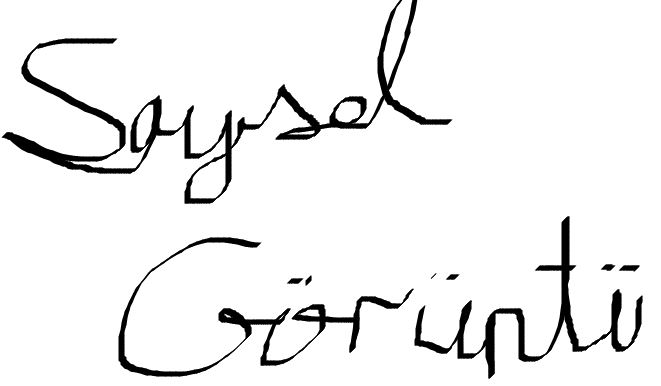 Sayısal
Görüntü